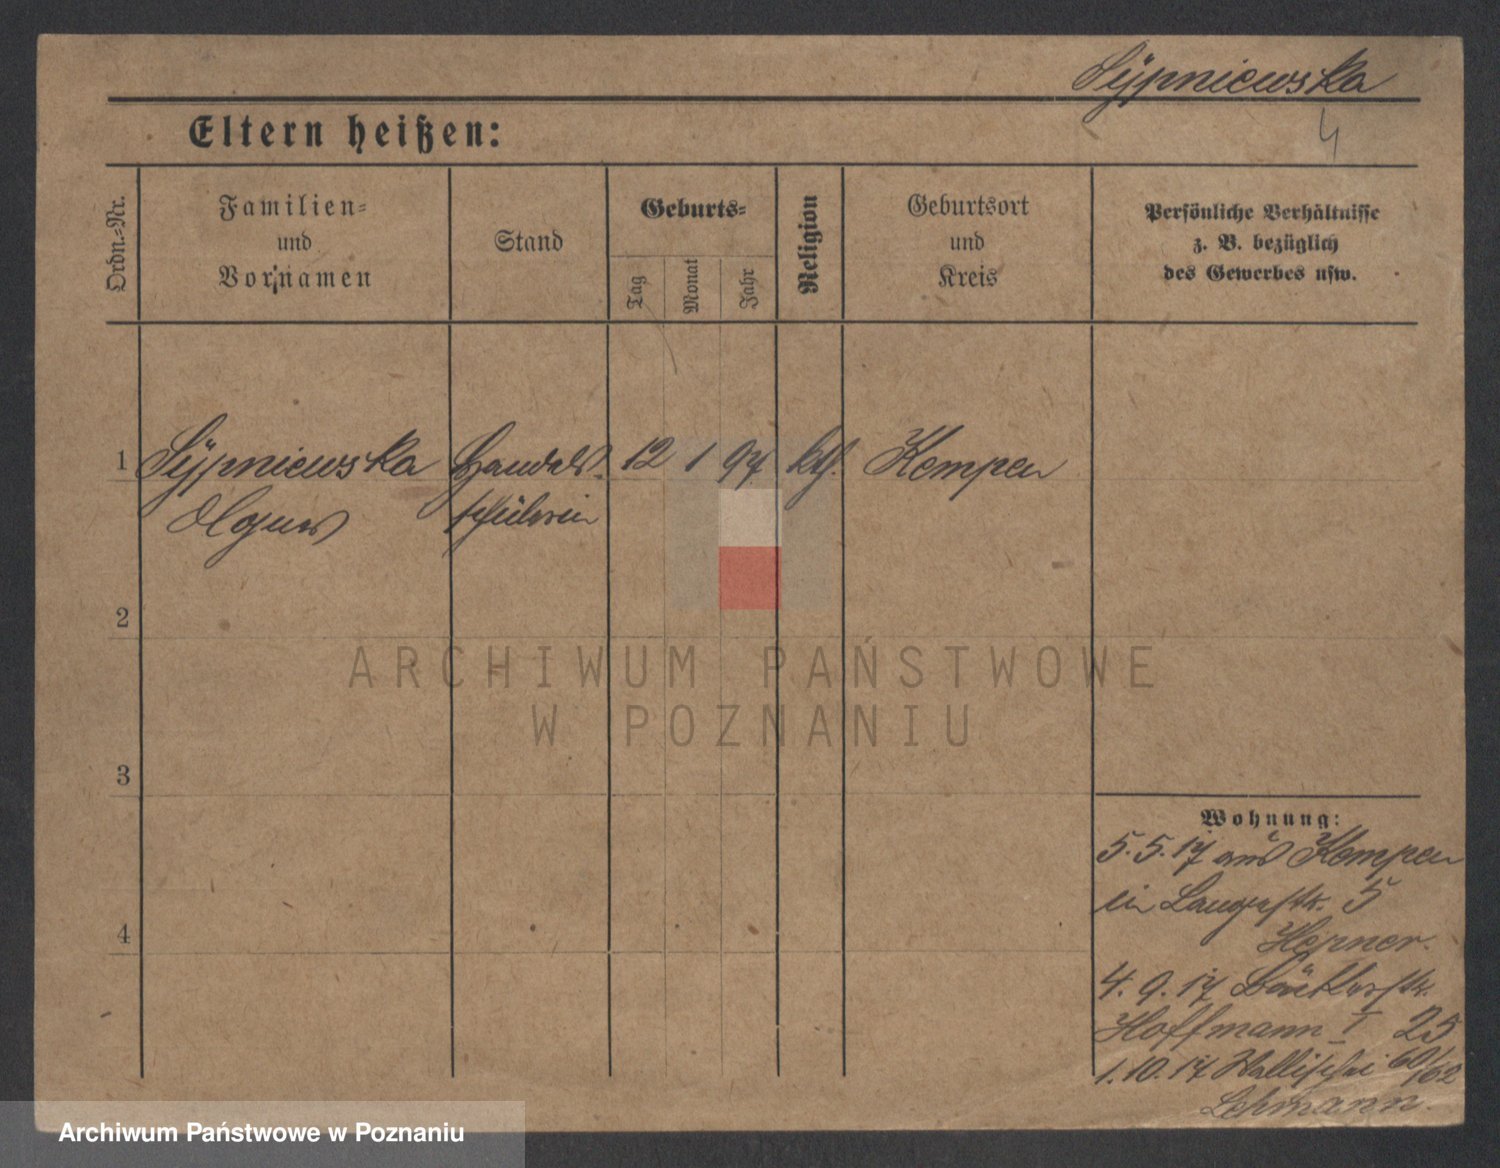 Sÿpniewska
4
Eltern heißen:
Ordn.-Nr.
Familien-
und
Vornamen
Stand
Geburts-
Tag
Monat
Jahr
Religion
Geburtsort
und
Kreis
Persönliche Verhältnisse
z. B. bezüglich
des Gewerbes usw.
1 Sÿpniewska Handels 12 1 97 kth. Kempen
Agnes schülerin
2
ARCHIWUM PAŃSTWOWE
W POZNANIU
3
Wohnung:
5.5.17 aus Kempen
in Langestr. 5
Hepner.
4
4. 9. 17
Hoffmann I 25
1.10.17 Wallischei 60/62
Lehmann.
Archiwum Państwowe w Poznaniu